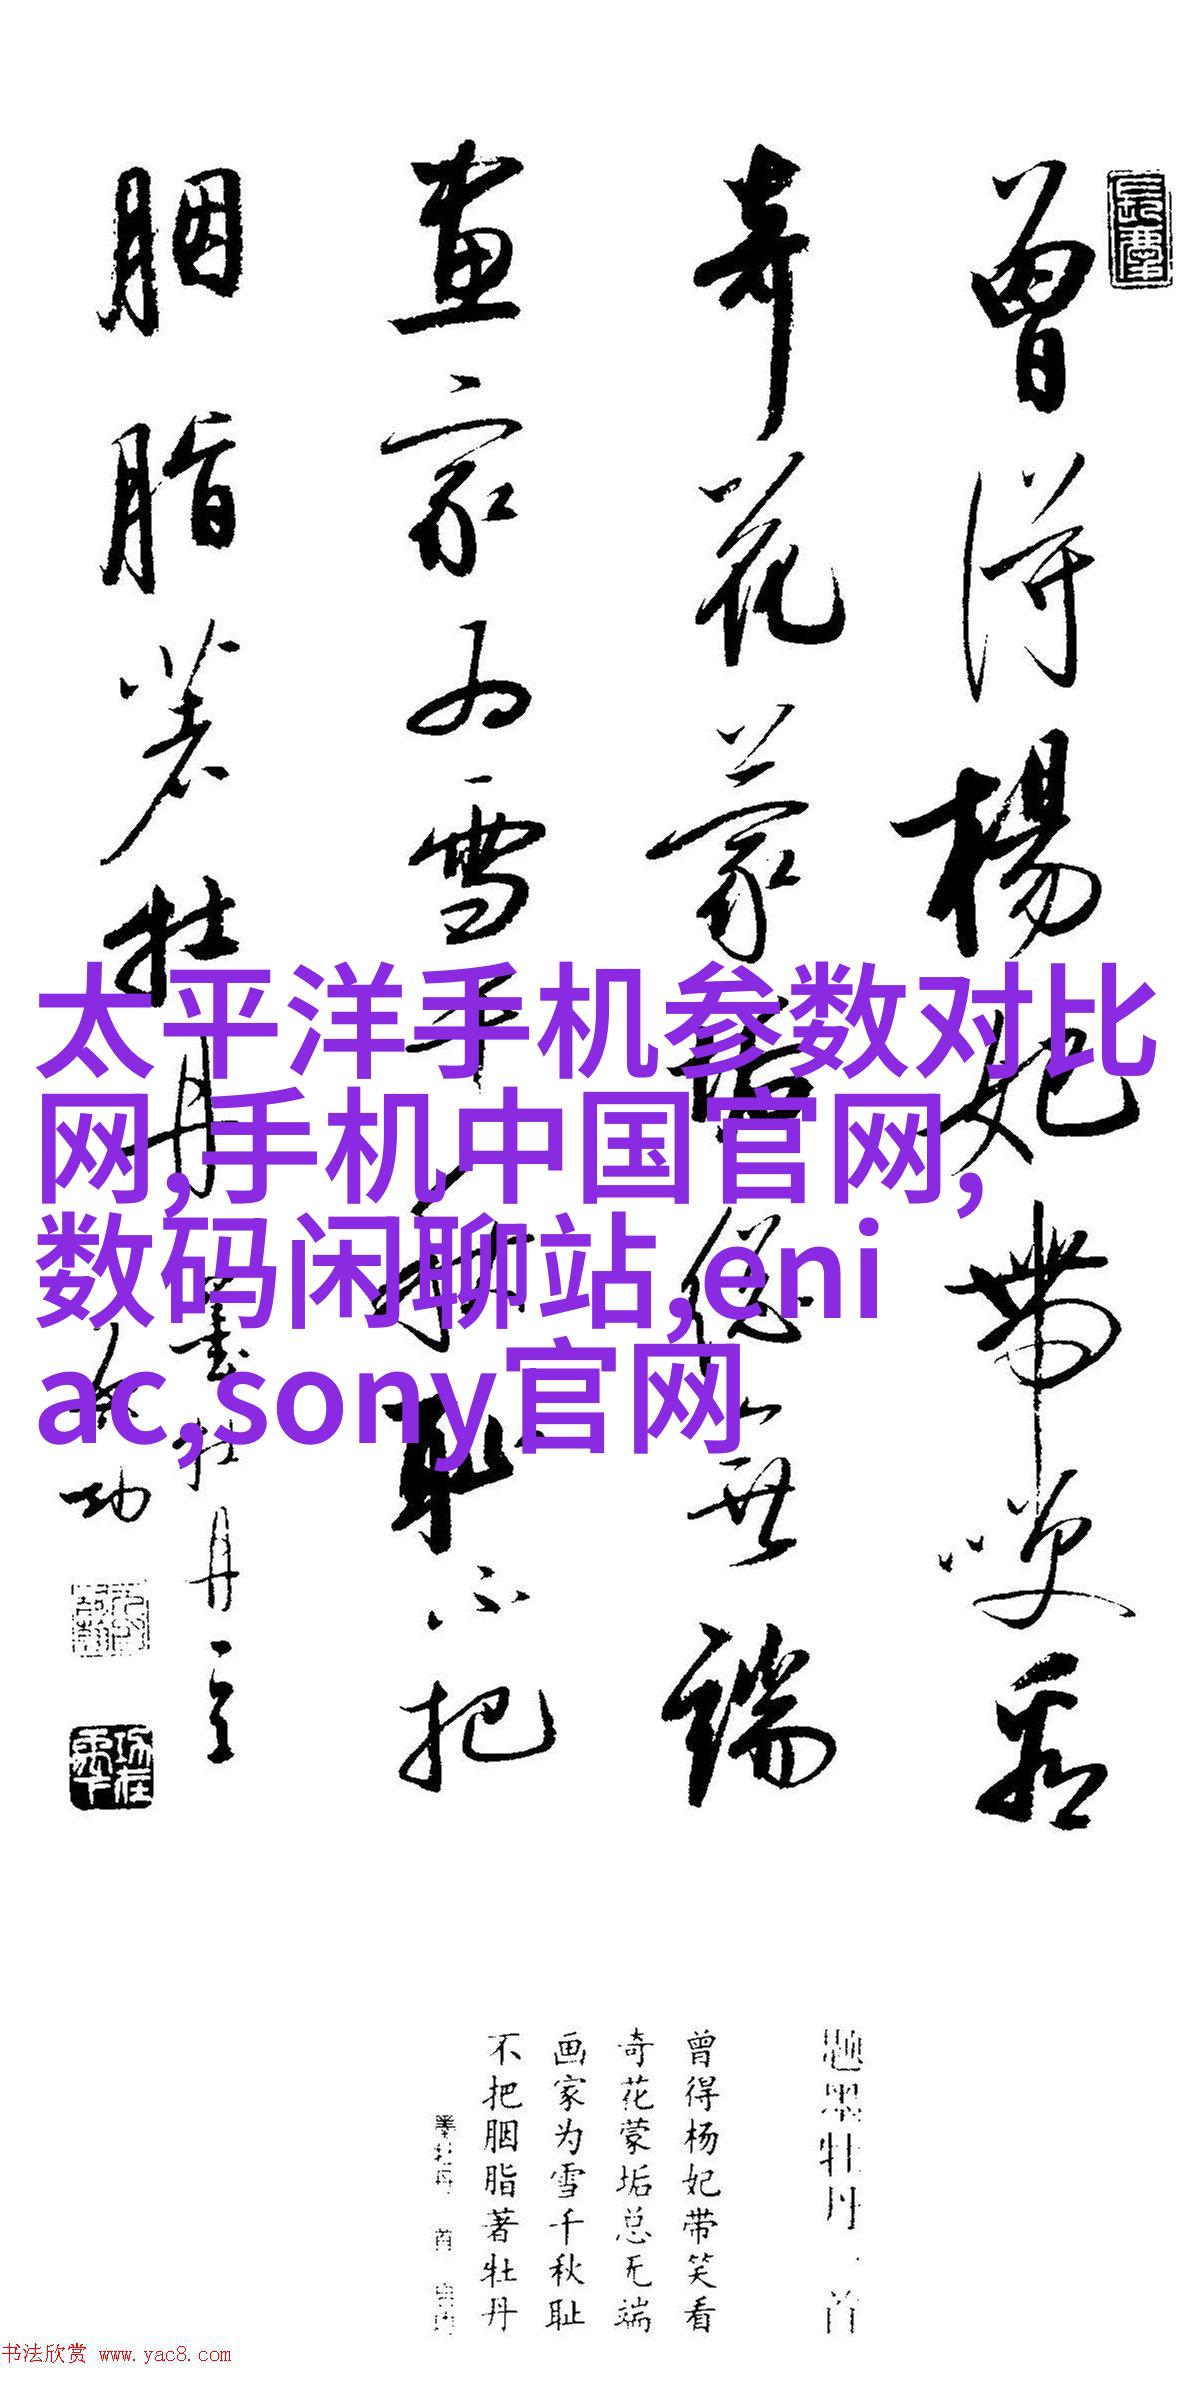 曾得楊妃帶笑看
奇花蒙垢總無端
畫家為雪千秋恥不把
胭脂著牡丹
墨牡丹一首
啟功
太平洋手机参数对比
网,手机中国官网,
数码闲聊站,eni
ac,sony官网
题墨牡丹一首
曾得杨妃带笑看
奇花蒙垢总无端
画家为雪千秋耻
不把胭脂著牡丹
书法欣赏 www.yac8.com